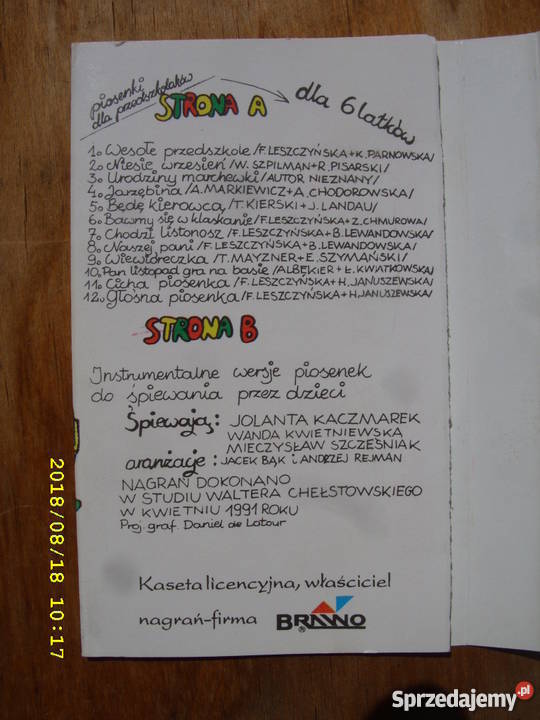 piosenki
dla przedszkolaków
STRONA A
dla 6 latków
1. Wesołe przedszkole /F. LESZCZYŃSKA + K. PARNOWSKA/
2. Niesie wrzesień /W. SZPILMAN + R. PISARSKI/
3. Urodziny marchewki /AUTOR NIEZNANY/
4. Jarzębina /A. MARKIEWICZ + A. CHODOROWSKA/
5. Będę kierowcą /T. KIERSKI + J. LANDAU/
6. Bawmy się w klaskanie /F. LESZCZYŃSKA + Z. CHMUROWA/
7. Chodzi listonosz /F. LESZCZYŃSKA + B. LEWANDOWSKA/
8. Naszej pani /F. LESZCZYŃSKA + B. LEWANDOWSKA/
9. Wiewióreczka /T. MAYZNER + E. SZYMAŃSKI/
10. Pan listopad gra na basie /ALBEKIER + Ł. KWIATKOWSKA/
11. Cicha piosenka /F. LESZCZYŃSKA + H. JANUSZEWSKA/
12. Głośna piosenka /F. LESZCZYŃSKA + H. JANUSZEWSKA/
STRONA B
Instrumentalne wersje piosenek
do śpiewania przez dzieci
Śpiewają: JOLANTA KACZMAREK
WANDA KWIETNIEWSKA
MIECZYSŁAW SZCZEŚNIAK
aranżacje: JACEK BĄK i ANDRZEJ REJMAN
NAGRAŃ DOKONANO
W STUDIU WALTERA CHEŁSTOWSKIEGO
W KWIETNIU 1991 ROKU
Proj. graf. Daniel de Latour
Kaseta licencyjna, właściciel
nagrań-firma BRAWO
2018/08/18 10:17
Sprzedajemy.pl